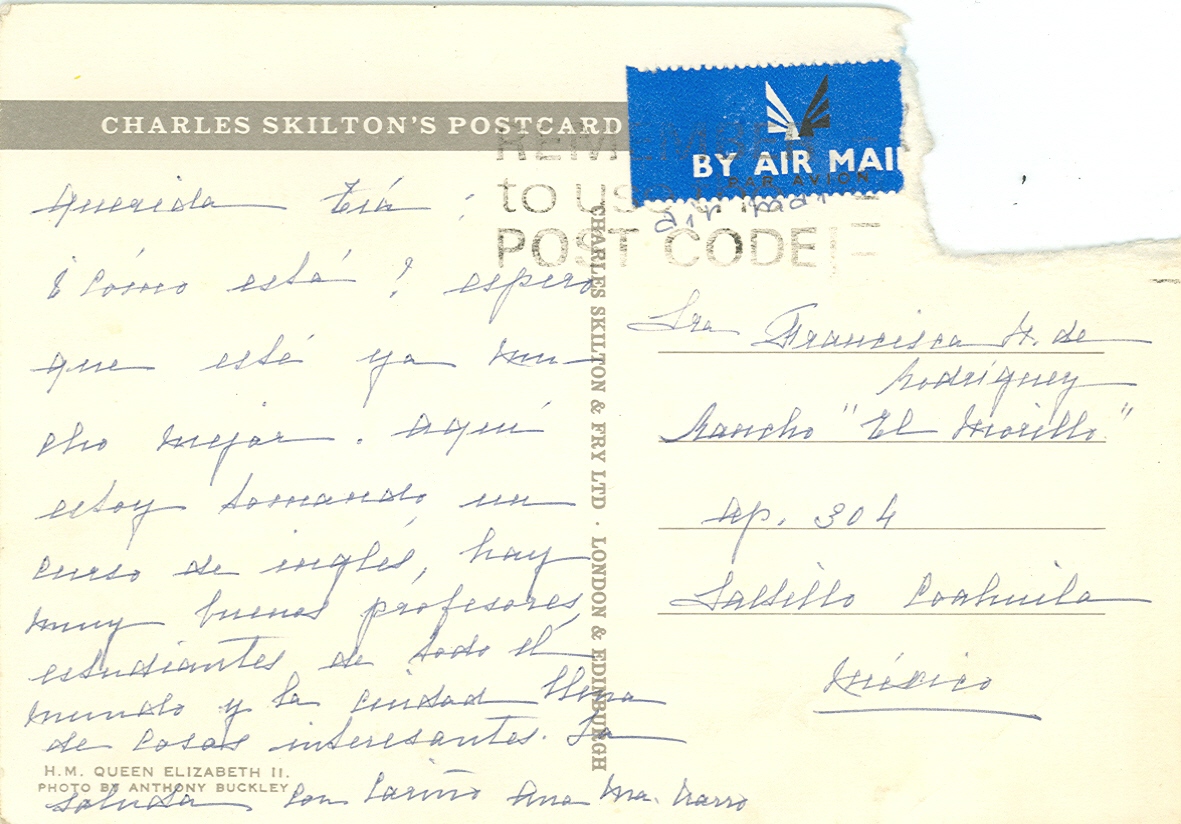 CHARLES SKILTON'S POSTCARD
BY AIR MAI
PAR AVION
air mai
REMEMBER
to use
POST CODE
Querida Tiá :
¿ Cómo está ? espero
que esté ya mu-
cho mejor. Aquí
estoy tomando un
curso de inglés, hay
muy buenos profesores,
estudiantes de todo el
mundo y la ciudad llena
de cosas interesantes. La
saluda con cariño Ana Ma. Narro
H.M. QUEEN ELIZABETH II.
PHOTO BY ANTHONY BUCKLEY
CHARLES SKILTON & FRY LTD · LONDON & EDINBURGH
Sra Francisca H. de
Rodríguez
Rancho "El Morillo"
Ap. 304
Saltillo Coahuila
México